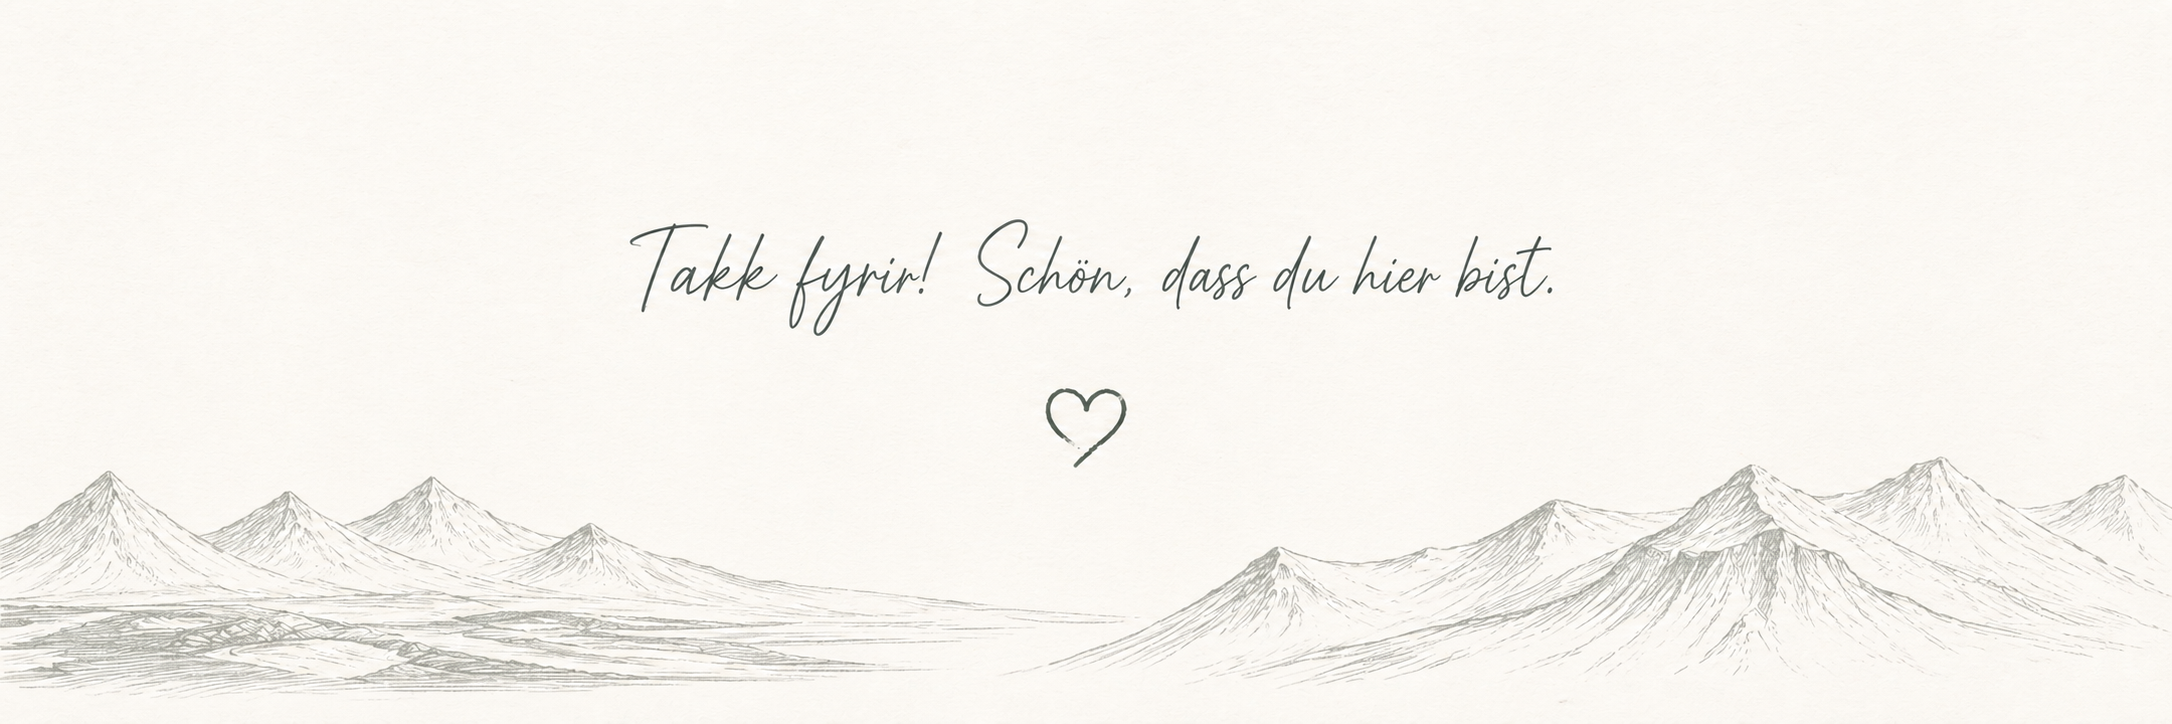 Takk fyrir! Schön, dass du hier bist.